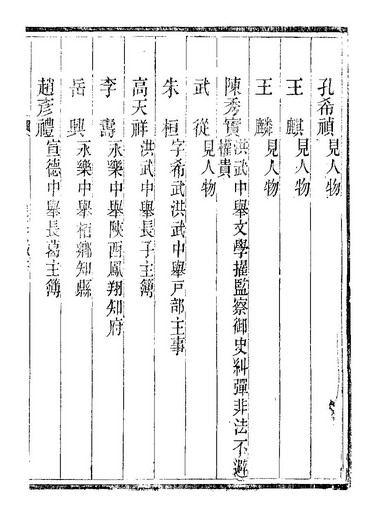 孔希禎見人物
王麒見人物
王麟見人物
陳秀實洪武中舉文學擢監察御史糾彈非法不避
權貴
武從見人物
朱桓字希武洪武中舉戶部主事
高天祥洪武中舉長子主簿
李壽永樂中舉陝西鳳翔知府
岳興永樂中舉栢鄉知縣
趙彥禮宣德中舉長葛主簿